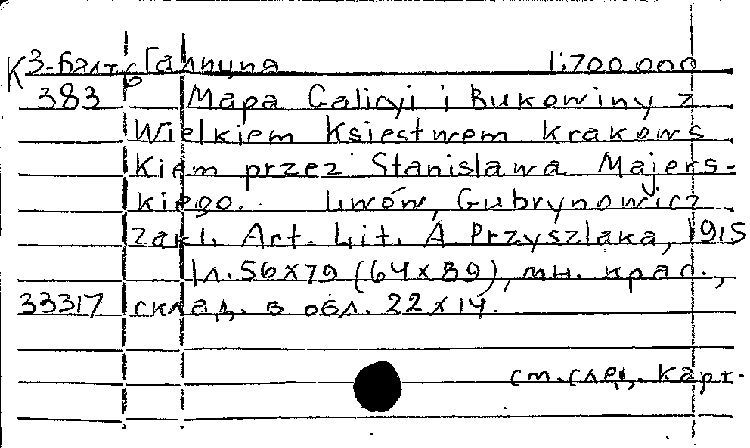 К 3-Балт. Галиция 1:700.000
383 Mapa Galicyi i Bukowiny z
Wielkiem Ksiestwem Krakows
kiem przez Stanislawa Majers-
kiego. Lwów, Gubrynowicz
Zakl. Art. Lit. A Przyszlaka, 1915
1л. 56x79 (64x89), мн. крас.,
33317 склад. в обл. 22x14.
см. след. карт.